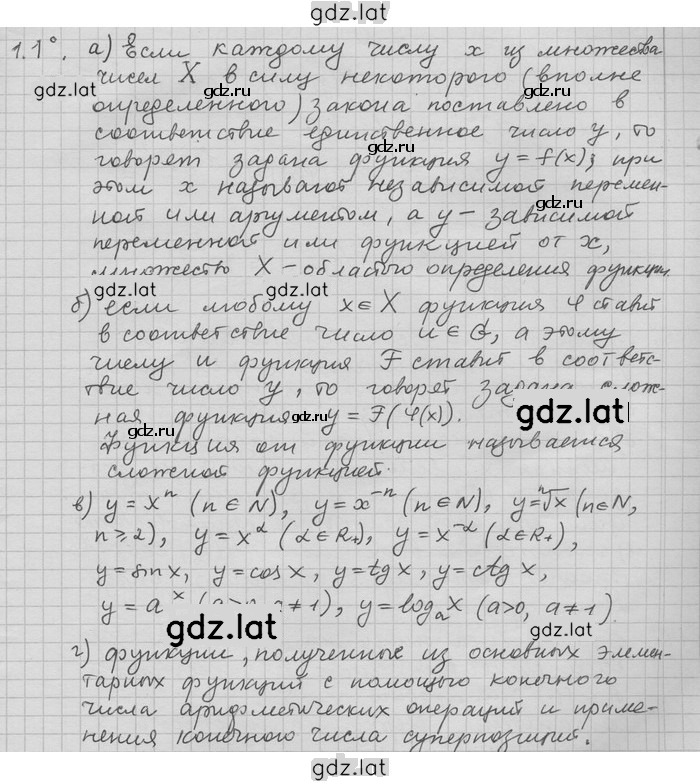 gdz.lat
1.1°. а) Если каждому числу x из множества
чисел X в силу некоторого (вполне
gdz.lat
gdz.ru
gdz.ru
определенного) закона поставлено в
соответствие единственное число y, то
говорят задана функция y = f(x); при
этом x называют независимой перемен-
ной или аргументом, а y – зависимой
переменной или функцией от x,
множество X – областью определения функции
gdz.lat
gdz.lat
б) если любому x ∈ X функция φ ставит
в соответствие число u ∈ G, а этому
числу u функция F ставит в соответс-
твие число y, то говорят задана слож-
gdz.lat
ная функция y = F(φ(x)).
gdz.ru
gdz.ru
Функция от функции называется
сложной функцией.
в) y = xⁿ (n ∈ N), y = x⁻ⁿ (n ∈ N), y = ⁿ√x (n ∈ N,
n ≥ 2), y = x^α (α ∈ R₊), y = x^-α (α ∈ R₊),
y = sin x, y = cos x, y = tg x, y = ctg x,
y = a^x (a>0, a ≠ 1), y = logₐ x (a>0, a ≠ 1).
gdz.lat
gdz.lat
г) функции, полученные из основных элемен-
тарных функций с помощью конечного
числа арифметических операций и приме-
нения конечного числа суперпозиций.
gdz.lat